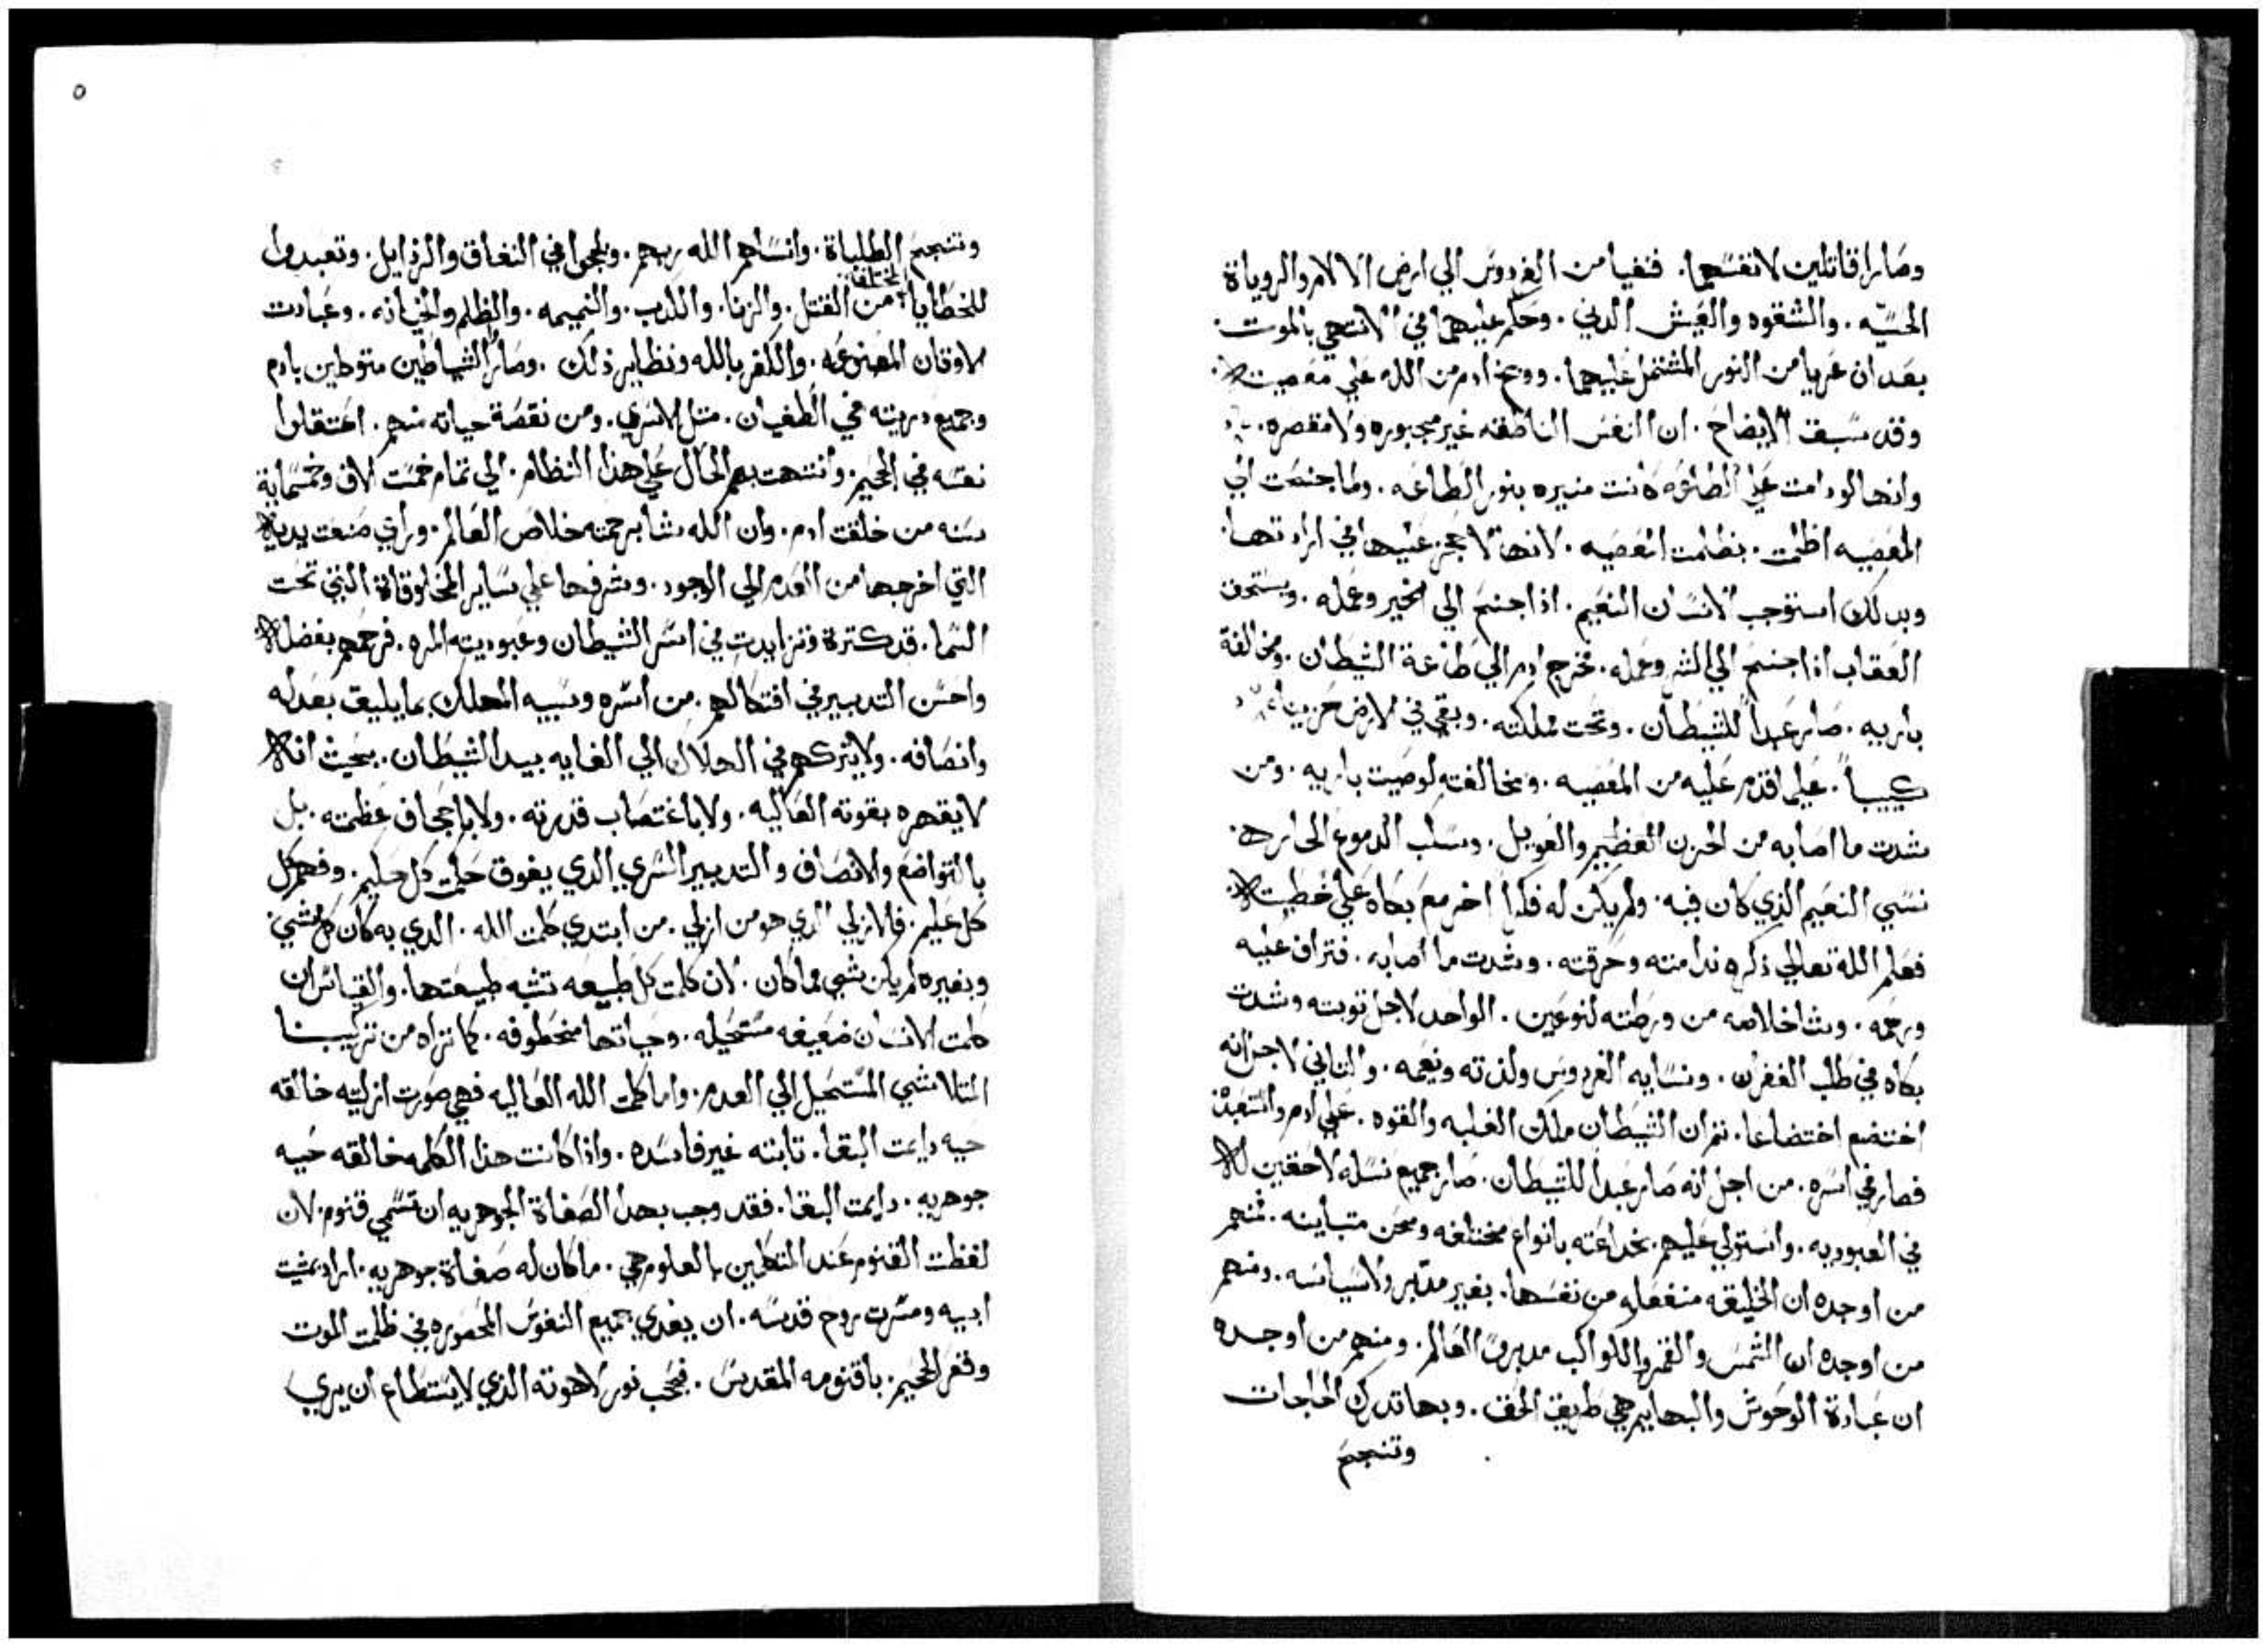 وصارا قاتلين لانفسهما. فنفيا من الفردوس الي ارض الالام والروياة
الحسيه. والشقوه والعيش الدني. وحكم عليهما في الانتهي بالموت.
بعد ان عريا من النور المشتمل عليهما. ووبخ ادم من الله علي معصيته.
وقد سبق الايضاح. ان النفس الناطقه غير مجبوره ولا مقصره.
وانها لو دامت علي الطاعه كانت منيره بنور الطاعه. ولما جنحت الي
المعصيه اظلمت. بظلمت المعصيه. لانها لا حجز عليها في ارادتها.
وبدلك استوجب الانسان النعيم. اذا جنح الي الخير وعمله. ويستحق
العقاب اذا جنح الي الشر وعمله. فخرج ادم الي طاعة الشيطان. ومخالفة
باريه. صار عبداً للشيطان. وتحت مملكته. وبقي في الارض حزيناً
كييباً. علي ما قدم عليه من المعصيه. ومخالفته لوصيت باريه. ومن
شدت ما اصابه من الحزن العظيم والعويل. وسكب الدموع الحاره.
نسي النعيم الذي كان فيه. ولم يكن له فكراً اخر مع بكاه علي خطيته.
فعلم الله تعالي ذكره ندامته وحرقته. وشدت ما اصابه. فتراف عليه
ورحمه. وشا خلاصه من ورطته لنوعين. الواحد لاجل توبته وشدت
بكاه في طلب الغفران. ونسايه الفردوس ولذته ونعيمه. والتاني لاجل انه
اختضع اختضاعا. ثم ان الشيطان ملك الغلبه والقوه. علي ادم واستعبده
فصار في اسره. من اجل انه صار عبداً للشيطان. صار جميع نسله لاحقين له
في العبوديه. واستولي عليهم بخداعته بانواع مختلفه ومحن متباينه. فمنهم
من اوجده ان الخليقه منفعله من نفسها. بغير مدبر ولا سياسه. ومنهم
من اوجده ان الشمس والقمر والكواكب مدبرين العالم. ومنهم من اوجده
ان عبادة الوحوش والبهايم هي طريق الحق. وبها تدرك الحاجات
وتنجح
٥
وتنجح الطلباة. وانساهم الله ربهم. ولججوا في النفاق والرذايل. وتعبدوا
للخطايا المختلفة من القتل. والزنا. والكدب. والنميمه. والظلم والخيانه. وعبادت
الاوتان المصنوعه. والكفر بالله ونظاير ذلك. وصاروا الشياطين متوكلين بادم
وجميع دريته في الطغيان. متل الاسري. ومن نقصة حياته منهم. اعتقلوا
نفسه في الجحيم. وانتهت بهم الحال علي هذا النظام. الي تمام خمست الاف وخمسماية
سنه من خلقت ادم. وان الله شا برحمته خلاص العالم. وراي صنعت يديه
التي اخرجها من العدم الي الوجود. وشرفها علي ساير المخلوقاة التي تحت
السما. قد كترة وتزايدت في اسر الشيطان وعبوديته المره. فرحمهم بفضله
واحسن التدبير في افتكاكهم. من اسره وسبيه المهلك بما يليق بعدله
وانصافه. ولا يتركهم في الهلاك الي الغايه بيد الشيطان. بحيث انه
لا يقهره بقوته العاليه. ولا باغتصاب قدرته. ولا باجحاف عظمته. بل
بالتواضع والانصاف والتدبير السري الدي يفوق حكمت كل حكيم. وفهم كل
كل عليم. فالازلي الدي هو من ازلي. من ابتدي كلمت الله. الدي به كان كل شي
وبغيره لم يكن شي مما كان. لان كلمت كل طبيعه تشبه طبيعتها. والقياس ان
كلمت الانسان ضعيفه مستحيله. وحياتها مخطوفه. كما تراه من تركيبنا
المتلاشي المستحيل الي العدم. واما كلمت الله العاليه فهي صورت ازليته خالقه
حيه دايمت البقا. تابته غير فاسده. واذا كانت هذا الكلمه خالقه حيه
جوهريه. دايمت البقا. فقد وجب بهدا الصفاة الجوهريه ان تسمي قنوم. لان
لفظت القنوم عند المتكلمين بالعلوم هي. ما كان له صفاة جوهريه. اراد بمشيت
ابيه ومسرت روح قدسه. ان يفدي جميع النفوس المحصوره في ظلمت الموت
وقعر الجحيم. باقنومه المقدس. فحجب نور لاهوته الذي لا يستطاع ان يري